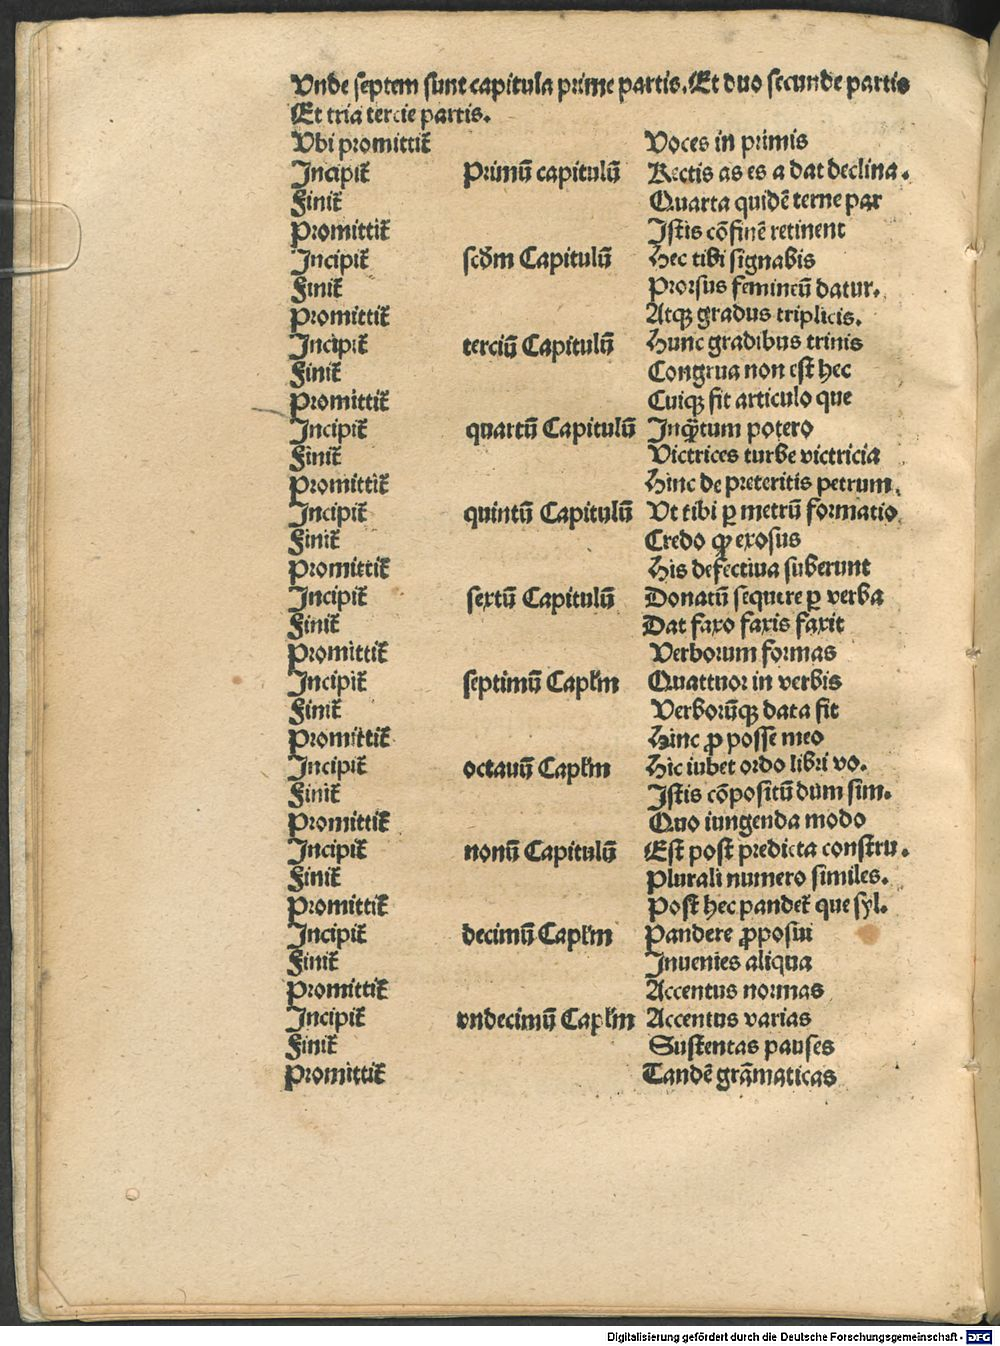 Vnde septem sunt capitula prime partis. Et duo secunde partis
Et tria tercie partis.
Vbi promittit̃ Voces in primis
Incipit̃ Primũ capitulũ Rectis as es a dat declina.
Finit̃ Quarta quidẽ terne par
Promittit̃ Istis cõfinẽ retinent
Incipit̃ scd̃m Capitulũ Hec tibi signabis
Finit̃ Prorsus femineũ datur.
Promittit̃ Atqꝫ gradus triplicis.
Incipit̃ terciũ Capitulũ Hunc gradibus trinis
Finit̃ Congrua non est hec
Promittit̃ Cuiqꝫ sit articulo que
Incipit̃ quartũ Capitulũ Inq̃tum potero
Finit̃ Victrices turbe victricia
Promittit̃ Hinc de preteritis petrum.
Incipit̃ quintũ Capitulũ Vt tibi ꝑ metrũ formatio
Finit̃ Credo ꝙ exosus
Promittit̃ His defectiua suberunt
Incipit̃ sextũ Capitulũ Donatũ sequere ꝑ verba
Finit̃ Dat faxo faxis faxit
Promittit̃ Verborum formas
Incipit̃ septimũ Capl̃m Quattuor in verbis
Finit̃ Verborũqꝫ data sit
Promittit̃ Hinc ꝓ posse meo
Incipit̃ octauũ Capl̃m Hic iubet ordo libri vo.
Finit̃ Istis cõpositũ dum sim.
Promittit̃ Quo iungenda modo
Incipit̃ nonũ Capitulũ Est post predicta constru.
Finit̃ Plurali numero similes.
Promittit̃ Post hec pandet̃ que syl.
Incipit̃ decimũ Capl̃m Pandere ꝓposui
Finit̃ Inuenies aliqua
Promittit̃ Accentus normas
Incipit̃ vndecimũ Capl̃m Accentus varias
Finit̃ Sustentas pauses
Promittit̃ Tandẽ grãmaticas
Digitalisierung gefördert durch die Deutsche Forschungsgemeinschaft - DFG